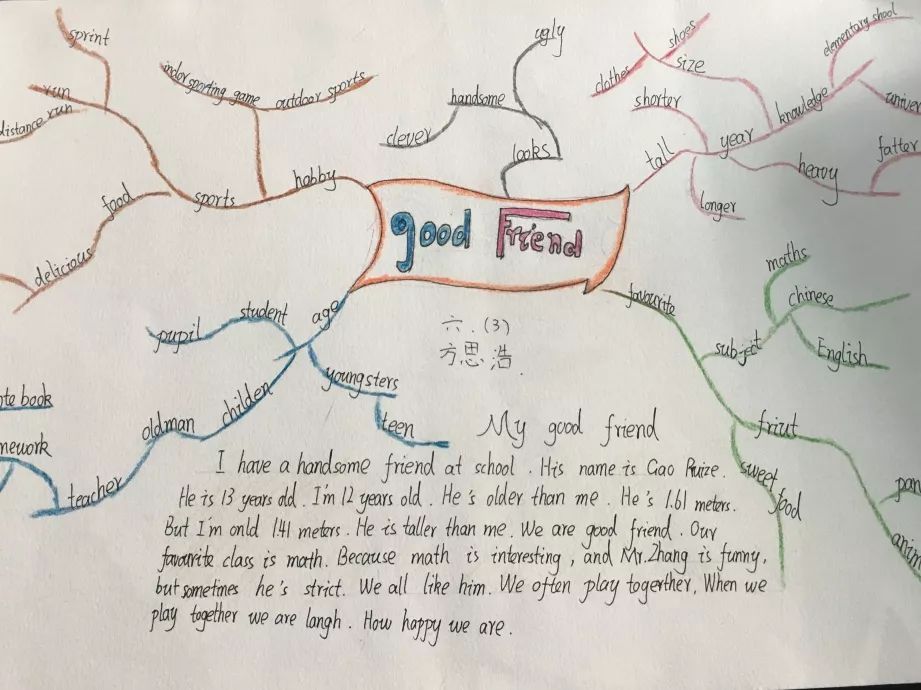 sprint
run
distance run
food
delicious
sports
hobby
indor sporting game
outdoor sports
ugly
handsome
clever
looks
shoes
clothes
size
shorter
tall
year
longer
knowledge
elementary shool
univer
heavy
fatter
good Friend
六.(3)
方思浩.
age
student
pupil
youngsters
teen
childen
oldman
teacher
ote book
mework
favourite
subject
maths
chinese
English
friut
sweet food
pan
anim
My good friend
I have a handsome friend at school. His name is Gao Ruize.
He is 13 years old. I'm 12 years old. He's older than me. He's 1.61 meters.
But I'm onld 1.41 meters. He is taller than me. We are good friend. Our
favourite class is math. Because math is interesting, and Mr.Zhang is funny,
but sometimes he's strict. We all like him. We often play togerther, When we
play together we are langh. How happy we are.